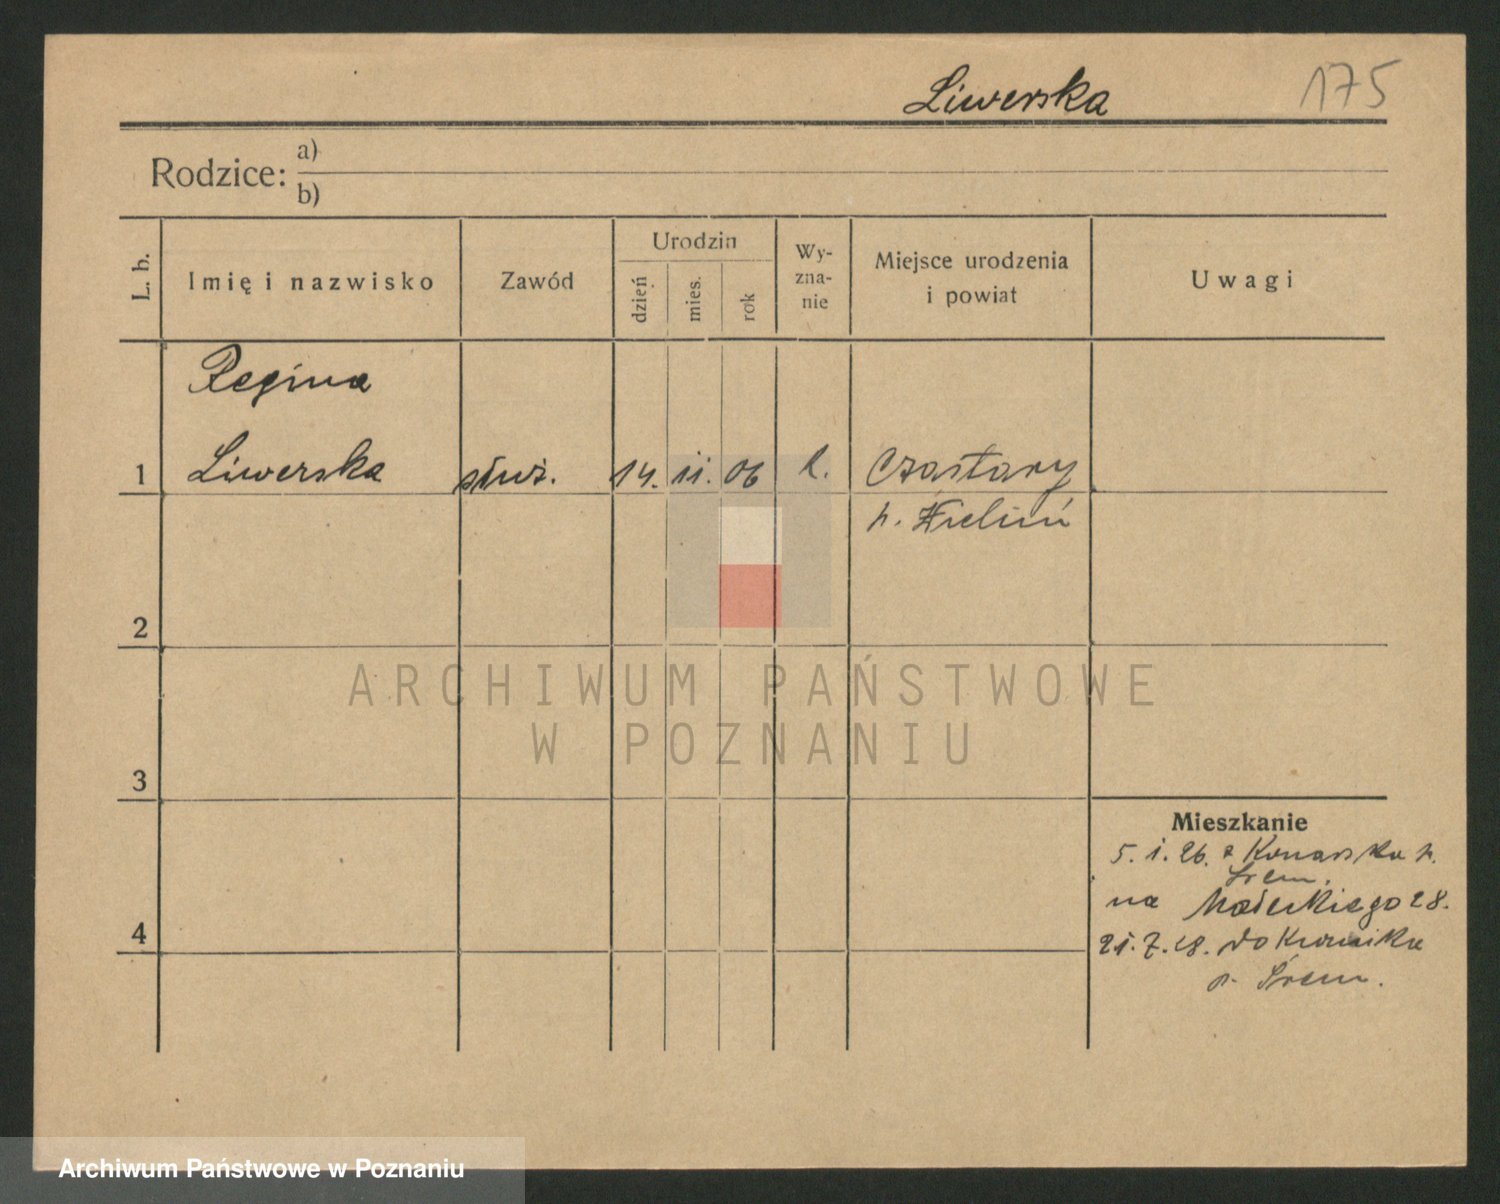 Liwerska 175
Rodzice: a)
b)
L. b.
Imię i nazwisko
Zawód
Urodzin
dzień
mies.
rok
Wy-
zna-
nie
Miejsce urodzenia
i powiat
Uwagi
Regina
1 Liwerska służ. 14. 11. 06 k. Czastary
p. Wieluń
2
ARCHIWUM PAŃSTWOWE
W POZNANIU
3
Mieszkanie
5. 1. 26. z Konarska p.
Śrem.
na Małeckiego 28.
4
21. 7. 28. do Kurnika
p. Śrem.
Archiwum Państwowe w Poznaniu